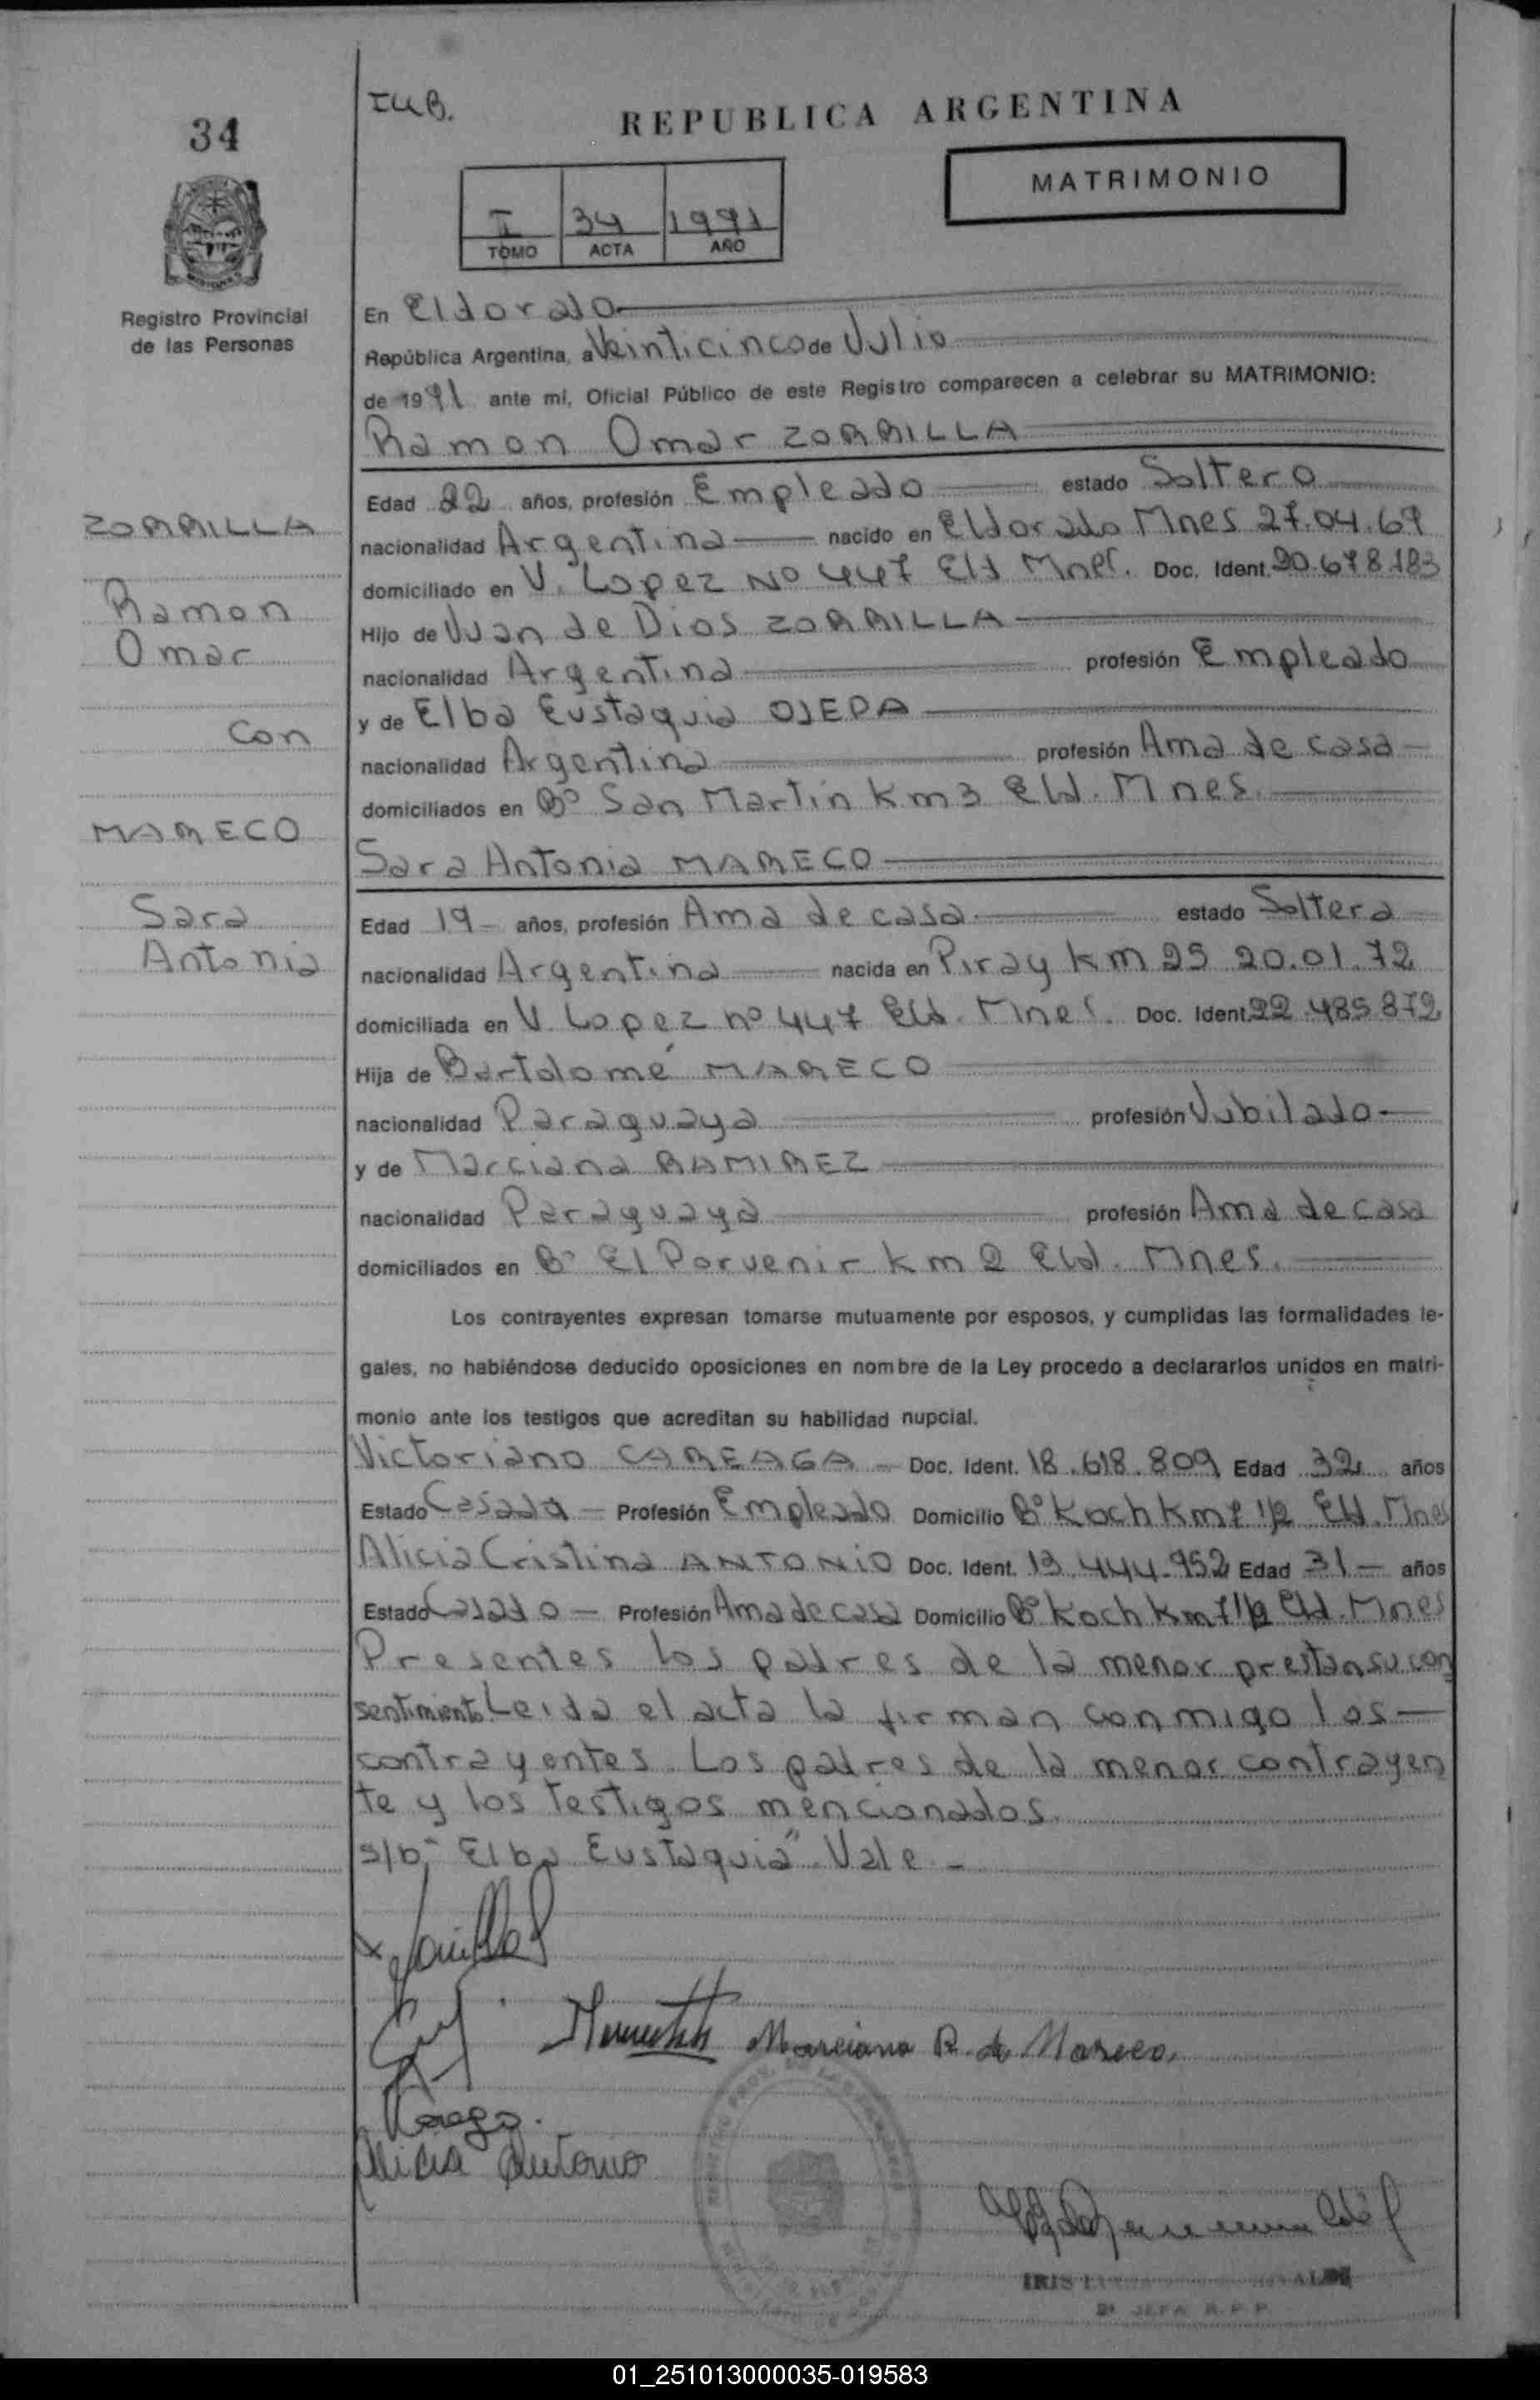 34
IUB.
REPUBLICA ARGENTINA
MATRIMONIO
I 34 1991
TOMO ACTA AÑO
Registro Provincial
de las Personas
En Eldorado
República Argentina, a Veinticinco de Julio
de 1991 ante mí, Oficial Público de este Registro comparecen a celebrar su MATRIMONIO:
Ramon Omar ZORRILLA
Edad 22 años, profesión Empleado estado Soltero
ZORRILLA
nacionalidad Argentina nacido en Eldorado Mnes 27.04.69
domiciliado en V. Lopez No 447 Eld Mnes. Doc. Ident. 20.678.183
Ramon
Hijo de Juan de Dios ZORRILLA
Omar
nacionalidad Argentina profesión Empleado
y de Elba Eustaquia OJEDA
Con
nacionalidad Argentina profesión Ama de casa
domiciliados en Bo San Martin Km 3 Eld. Mnes.
MARECO
Sara Antonia MARECO
Edad 19 años, profesión Ama de casa estado Soltera
Sara
Antonia
nacionalidad Argentina nacida en Piray Km 25 20.01.72
domiciliada en V. Lopez no 447 Eld. Mnes. Doc. Ident. 22.485.872
Hija de Bartolomé MARECO
nacionalidad Paraguaya profesión Jubilado
y de Marciana RAMIREZ
nacionalidad Paraguaya profesión Ama de casa
domiciliados en Bo El Porvenir Km 2 Eld. Mnes.
Los contrayentes expresan tomarse mutuamente por esposos, y cumplidas las formalidades le-
gales, no habiéndose deducido oposiciones en nombre de la Ley procedo a declararlos unidos en matri-
monio ante los testigos que acreditan su habilidad nupcial.
Victoriano CAREAGA Doc. Ident. 18.618.809 Edad 32 años
Estado Casada Profesión Empleado Domicilio Bo Koch Km 7 1/2 Eld. Mnes
Alicia Cristina ANTONIO Doc. Ident. 13.444.952 Edad 31 años
Estado Casado Profesión Ama de casa Domicilio Bo Koch Km 7 1/2 Eld. Mnes
Presentes los padres de la menor prestan su con
sentimiento Leida el acta la firman conmigo los
contrayentes. Los padres de la menor contrayen
te y los testigos mencionados.
s/b "Elba Eustaquia" Vale
Marciana R. de Mareco.
Alicia Antonio
IRIS
JEFA R.P.P.
01_251013000035-019583